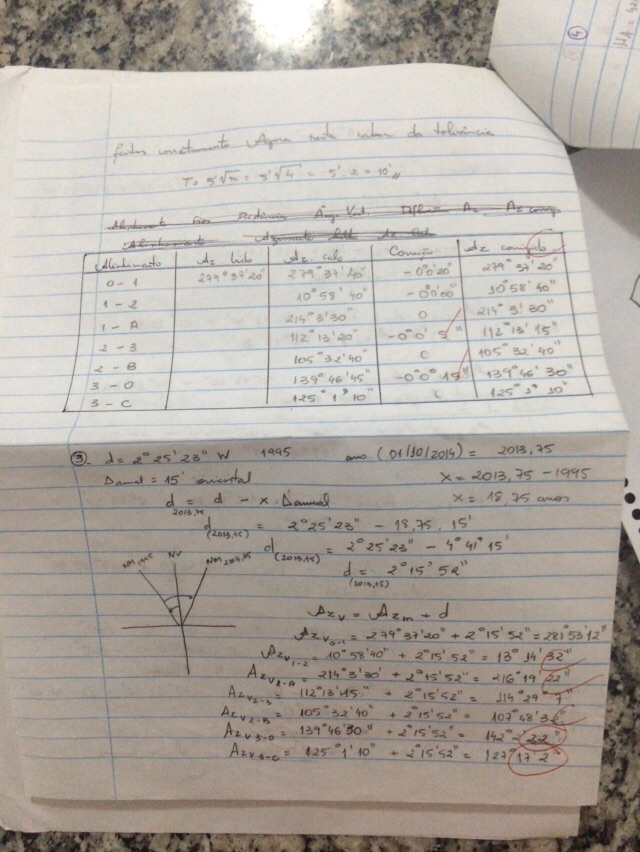 feitas corretamente Agora resta saber da tolerância
T = 5'√n = 5'√4 = 5'. 2 = 10'//
Alinhamento Az lido Az calc Correção Az corrigido
0 - 1 279°37'20" 279°37'40" -0°0'20" 279°37'20"
1 - 2 10°58'40" -0°0'00" 10°58'40"
1 - A 214°3'30" 0 214°3'30"
2 - 3 112°13'20" -0°0'5" 112°13'15"
2 - B 105°32'40" 0 105°32'40"
3 - 0 139°46'45" -0°0'15" 139°46'30"
3 - C 125°1'10" 125°1'10"
3. d = 2°25'23" W 1995 ano (01/10/2014) = 2013,75
Danual = 15' oriental x = 2013,75 - 1995
d2013,75 = d - x. Danual x = 18,75 anos
d(2013,75) = 2°25'23" - 18,75. 15'
d(2013,75) = 2°25'23" - 4°41'15'
d(2013,75) = 2°15'52"
NM1995 NV NM2013,75
Azv = Azm + d
Azv0-1 = 279°37'20" + 2°15'52" = 281°53'12"
Azv1-2 = 10°58'40" + 2°15'52" = 13°14'32"
Azv1-A = 214°3'30' + 2°15'52" = 216°19'22"
Azv2-3 = 112°13'15" + 2°15'52" = 114°29'7"
Azv2-B = 105°32'40" + 2°15'52" = 107°48'32"
Azv3-0 = 139°46'30" + 2°15'52" = 142°2'22"
Azv3-C = 125°1'10" + 2°15'52" = 127°17'2"